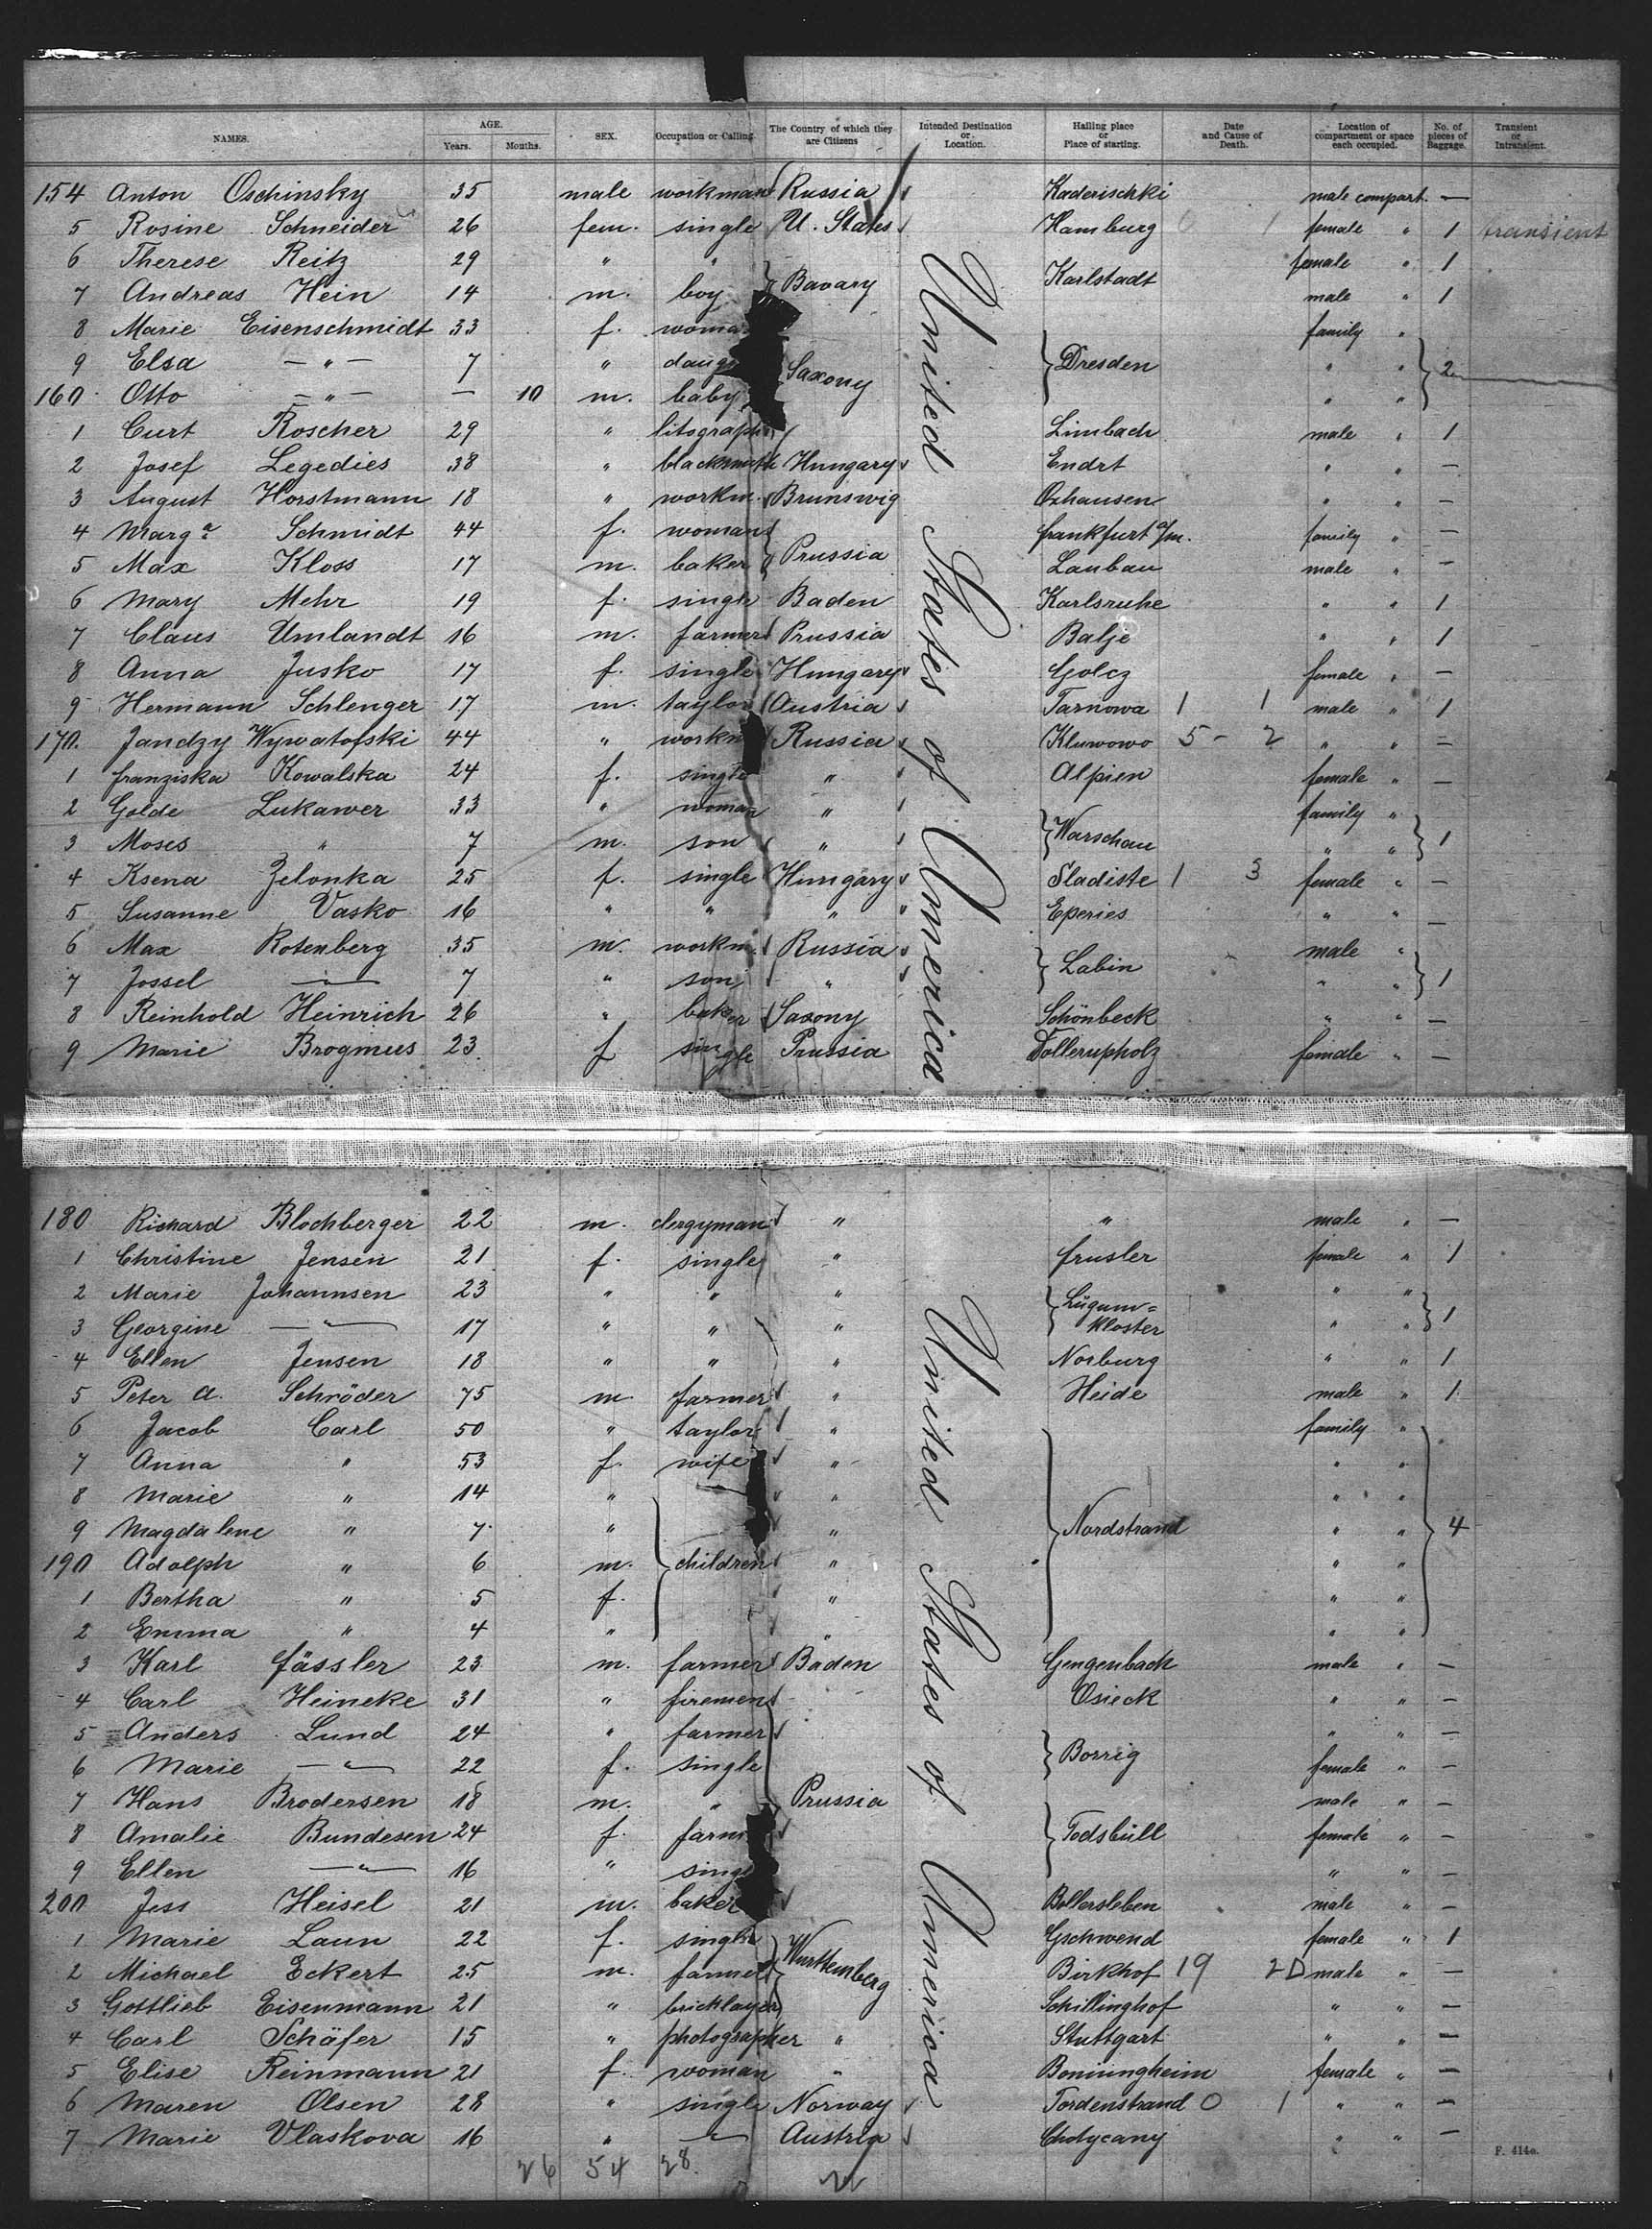 NAMES. AGE. Years. Months. SEX. Occupation or Calling. The Country of which they are Citizens Intended Destination or Location. Halling place or Place of starting. Date and Cause of Death. Location of compartment or space each occupied. No. of pieces of Baggage. Transient or Intransient.
154 Anton Oschinsky 35 male workman Russia Kaderischki male compart. —
5 Rosine Schneider 26 fem. single U. States Hamburg 0 1 female " 1 transient
6 Therese Reitz 29 " " female " 1
Bavary Karlstadt
7 Andreas Hein 14 m. boy male " 1
8 Marie Eisenschmidt 33 f. woma family "
9 Elsa — " — 7 " daug Saxony Dresden " " 2
160 Otto — " — — 10 m. baby " "
1 Curt Roscher 29 " litograph Limbach male " 1
2 Josef Legedies 38 " blacksmith Hungary Endrt " " —
3 August Horstmann 18 " workm. Brunswig Oxhausen " " —
4 Marga Schmidt 44 f. woman frankfurt a/m. family " —
Prussia
5 Max Kloss 17 m. baker Lauban male " —
6 Mary Mehr 19 f. single Baden Karlsruhe " " 1
7 Claus Umlandt 16 m. farmer Prussia Balje " " 1
8 Anna Jusko 17 f. single Hungary Golcz female " —
9 Hermann Schlenger 17 m. taylor Austria Tarnowa 1 1 male " 1
170. Jandzy Wywatofski 44 " workm Russia Kluwowo 5 - 2 " " —
1 franziska Kowalska 24 f. single " Alpien female " —
2 Golde Lukawer 33 " woman " family "
Warschau 1
3 Moses " 7 m. son " " "
4 Ksena Zelonka 25 f. single Hungary Sladiste 1 3 female " —
5 Susanne Vasko 16 " " " Eperies " " —
6 Max Rotenberg 35 m. workm. Russia male "
Labin 1
7 Jossel — " — 7 " son " " "
8 Reinhold Heinrich 26 " baker Saxony Schönbeck " " —
9 Marie Brogmus 23 f single Prussia Dollerupholz female " —
United States of America
180 Richard Blochberger 22 m. clergyman " " male " —
1 Christine Jensen 21 f. single " frusler female " 1
2 Marie Johannsen 23 " " " Lügum= " "
3 Georgine — " — 17 " " " kloster " " 1
4 Ellen Jensen 18 " " " Norburg " " 1
5 Peter A. Schröder 75 m. farmer " Heide male " 1
6 Jacob Carl 50 " taylor " family "
7 Anna " 53 f. wife " " "
8 Marie " 14 " " " "
9 Magdalene " 7 " " Nordstrand " " 4
190 Adolph " 6 m. children " " "
1 Bertha " 5 f. " " "
2 Emma " 4 " " " "
3 Karl fässler 23 m. farmer Baden Gengenbach male " —
4 Carl Heineke 31 " firemen Osieck " " —
5 Anders Lund 24 " farmer " " —
Borrig
6 Marie — " — 22 f. single female " —
7 Hans Brodersen 18 m. " Prussia male " —
8 Amalie Bundesen 24 f. farm Todsbüll female " —
9 Ellen — " — 16 " singl " " —
200 Jess Heisel 21 m. baker Bollersleben male " —
1 Marie Laun 22 f. single Württemberg Gschwend female " 1
2 Michael Eckert 25 m. farmer Birkhof 19 2D male " —
3 Gottlieb Eisenmann 21 " bricklayer Schillinghof " " —
4 Carl Schäfer 15 " photographer " Stuttgart " " —
5 Elise Reinmann 21 f. woman " Bonningheim female " —
6 Maren Olsen 28 " single Norway Tordenstrand 0 1 " " —
7 Marie Vlaskova 16 " " Austria Chotycany " " —
United States of America
26 54 28
F. 414a.